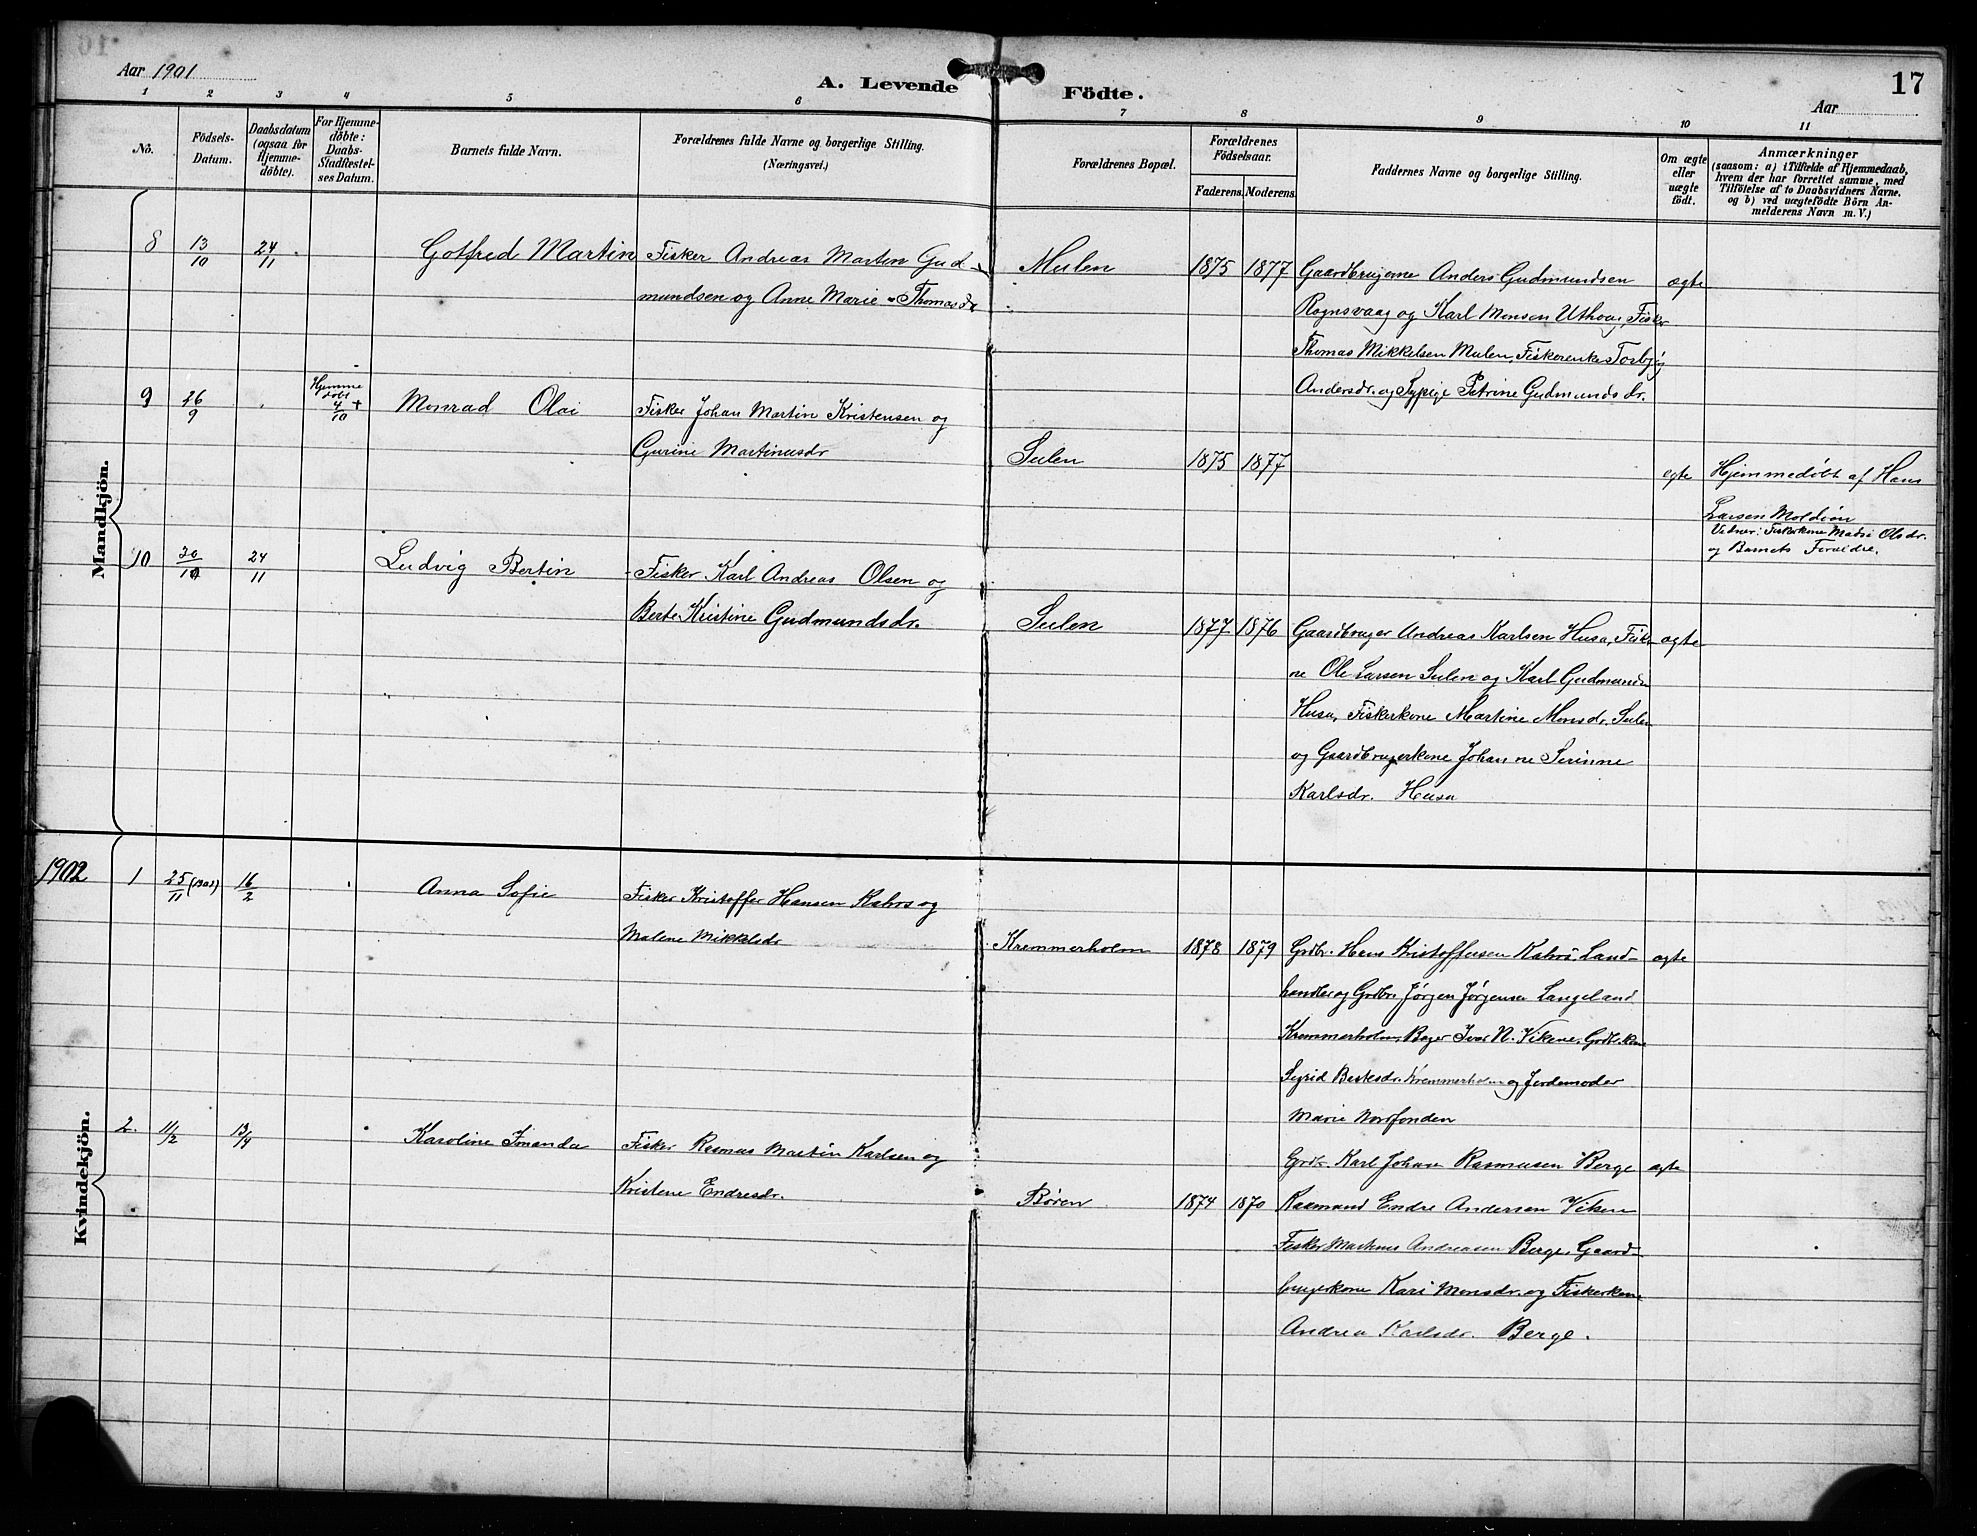 Aar 1901
A. Levende Födte.
17
Aar
1 2 3 4 5 6 7 8 9 10 11
No.
Födsels-
Datum.
Daabsdatum
(ogsaa for
Hjemme-
döbte).
For Hjemme-
döbte:
Daabs-
Stadfæstel-
ses Datum.
Barnets fulde Navn.
Forældrenes fulde Navne og borgerlige Stilling.
(Næringsvei.)
Forældrenes Bopæl.
Forældrenes
Födselsaar.
Faderens. Moderens.
Faddernes Navne og borgerlige Stilling.
Om ægte
eller
uægte
födt.
Anmærkninger
(saasom: a) i Tilfælde af Hjemmedaab,
hvem der har forrettet samme, med
Tilföielse af to Daabsvidners Navne.
og b) ved uægtefödte Börn An-
melderens Navn m. V.)
Mandkjön.
8 13/10 24/11 Gotfred Martin
Fisker Andreas Martin Gud-
mundsen og Anne Marie Thomasdr
Mulen 1875 1877
Gaardbrugerne Anders Gudmundsen
Rognsvaag og Karl Monsen Uthoug, Fisker
Thomas Mikkelsen Mulen, Fiskerenke Torbjøg
Andersdr. og Sypige Petrine Gudmundsdr.
ægte
9 26/9 Hjemme
døbt
4/10 +
Monrad Olai
Fisker Johan Martin Kristensen og
Gurine Martinusdr
Sulen 1875 1877 egte
Hjemmedøbt af Hans
Larsen Moldøen
Vidner: Fiskerkone Madsi Olsdr.
og Barnets Foreldre.
10 30/10 24/11 Ludvig Bertin
Fisker Karl Andreas Olsen og
Berte Kristine Gudmundsdr.
Sulen 1877 1876
Gaardbruger Andreas Karlsen Husa, Fisker-
ne Ole Larsen Sulen og Karl Gudmunds
Husa, Fiskerkone Martine Monsdr. Sulen
og Gaardbrugerkone Johanne Serinne
Karlsdr. Husa
ægte
1902
Kvindekjön.
1 25/11 (1901) 16/2 Anna Sofie
Fisker Kristoffer Hansen Kahrs og
Malene Mikkelsdr
Kremmerholm 1878 1879
Grdbr. Hans Kristoffersen Kahrs, Land-
handler og Grdbr. Jørgen Jørgensen Langeland
Kremmerholm, Bager Ivar N. Vikene, Grdbr.kone
Sigrid Bertesdr. Kremmerholm og Jordemoder
Marie Norfonden
ægte
2. 11/2 13/4 Karoline Imanda
Fisker Rasmus Martin Karlsen og
Kristene Endresdr.
Børen 1874 1870
Grdbr. Karl Johan Rasmusen Berge
Kaarmand Endre Andersen Viken
Fisker Martinus Andreasen Berge, Gaard-
brugerkone Kari Monsdr. og Fiskerkone
Andrea Karlsdr. Berge.
ægte